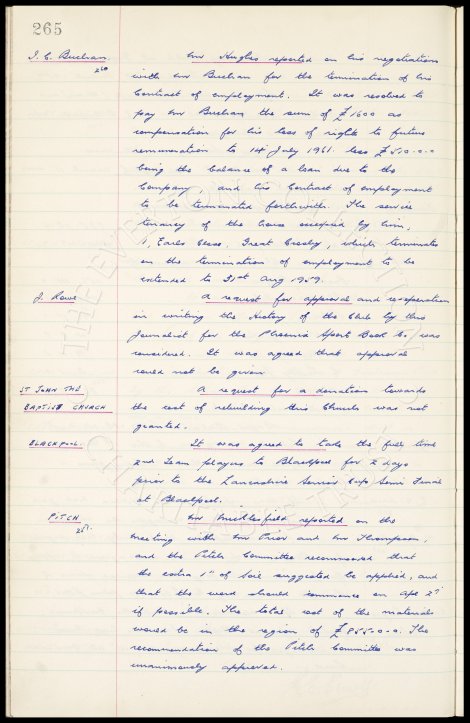 265
J. C. Buchan.
260
Mr Hughes reported on his negotiations
with Mr Buchan for the termination of his
Contract of employment. It was resolved to
pay Mr Buchan the sum of £1600 as
compensation for his loss of rights to future
remuneration to 14 July 1961. less £510-0-0
being the balance of a loan due to the
Company, and his Contract of employment
to be terminated forthwith. The service
tenancy of the house occupied by him,
1, Earls Close, Great Crosby, which terminates
on the termination of employment to be
extended to 31st Aug 1959.
J. Rowe
A request for approval and co-operation
in writing the History of the Club by this
Journalist for the Phoenix Sport Book Co. was
considered. It was agreed that approval
could not be given
ST JOHN THE
BAPTIST CHURCH
A request for a donation towards
the cost of rebuilding this Church was not
granted.
BLACKPOOL.
It was agreed to take the full time
2nd Team players to Blackpool for 2 days
prior to the Lancashire Senior Cup Semi Final
at Blackpool.
PITCH
Mr Micklesfield reported on the
meeting with Mr Prior and Mr Thompson,
and the Pitch Committee recommended that
the extra 1" of soil suggested be applied, and
that the work should commence on Apl
if possible. The total cost of the materials
would be in the region of £855-0-0. The
recommendation of the Pitch Committee was
unanimously approved.
THE EVERTON